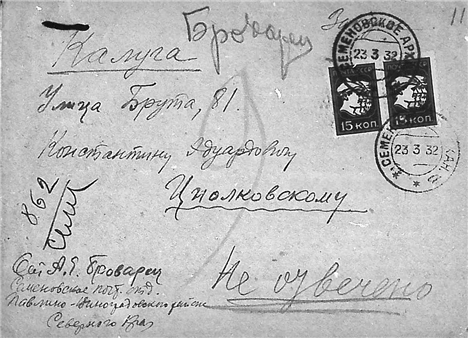 11
Броварец
Калуга
СЕМЕНОВСКОЕ АРХ
23 3 32
15 КОП. 15 КОП.
Улица Брута, 81.
СЕМЕН
23 3 32
Константину Эдуардовичу
Циолковскому
862
От А. Я. Броварец
Семеновское почт. отд.
Павлино-Виноградовского района
Северного Края
Не отвечено